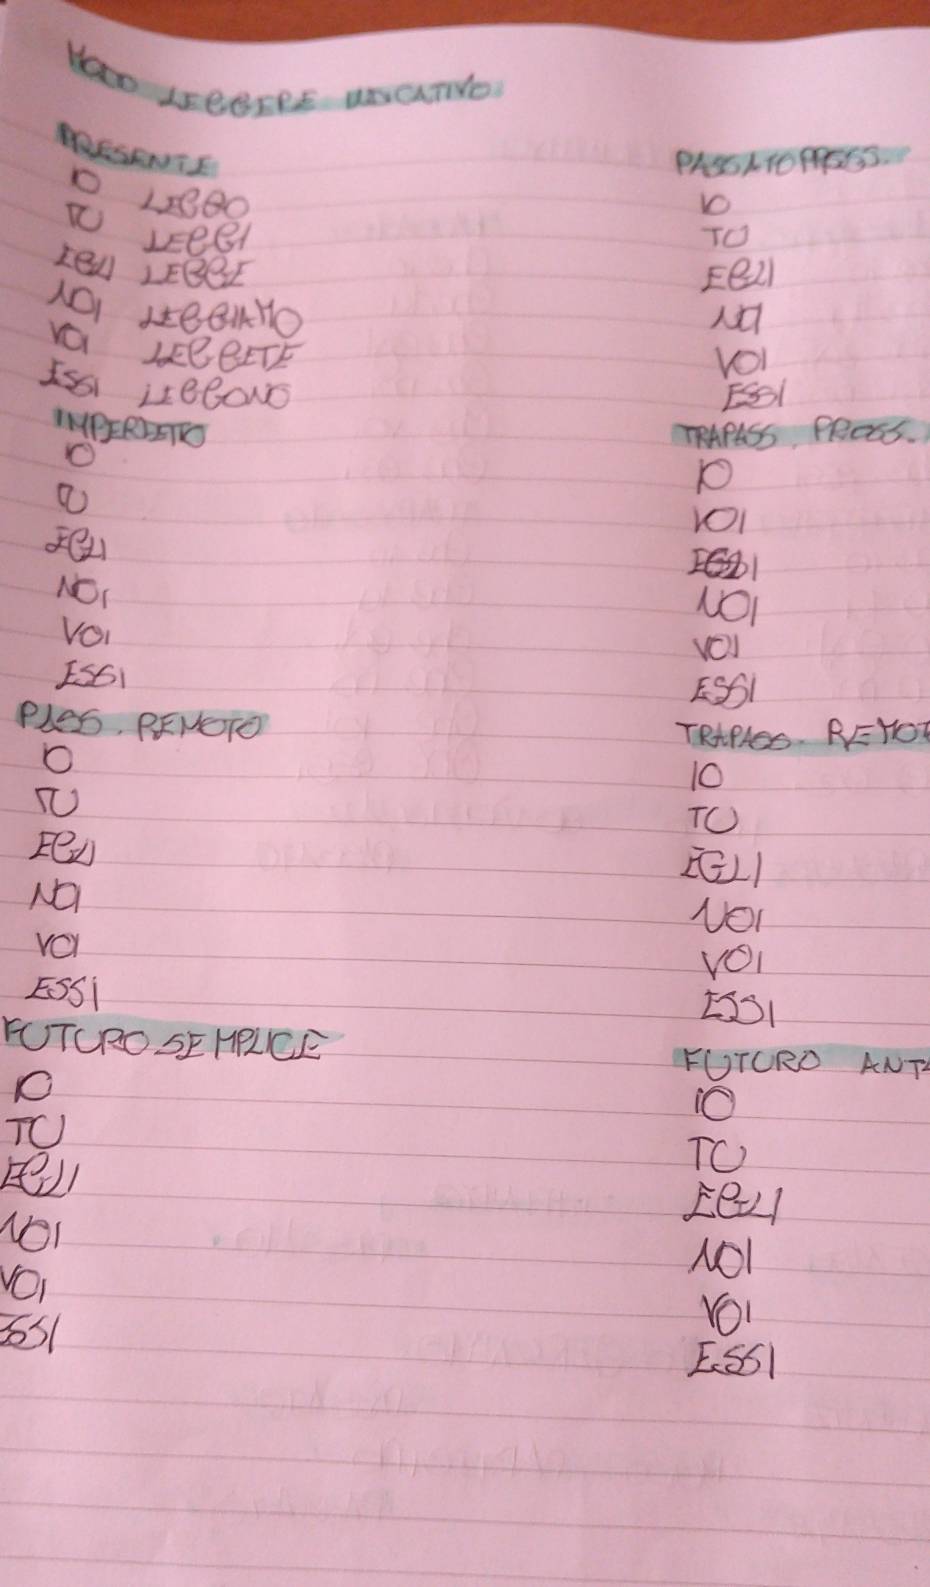 MODO LEGGERE INDICATIVO
PRESENTE
IO LEGGO
TU LEGGI
EGLI LEGGE
NOI LEGGIAMO
VOI LEGGETE
ESSI LEGGONO
IMPERFETTO
IO
TU
EGLI
NOI
VOI
ESSI
PASS. REMOTO
IO
TU
EGLI
NOI
VOI
ESSI
FUTURO SEMPLICE
IO
TU
EGLI
NOI
VOI
ESSI
PASSATO PROSS.
IO
TU
EGLI
NOI
VOI
ESSI
TRAPASS. PROSS.
IO
VOI
EGLI
NOI
VOI
ESSI
TRAPASS. REMOT
IO
TU
EGLI
NOI
VOI
ESSI
FUTURO ANT
IO
TU
EGLI
NOI
VOI
ESSI